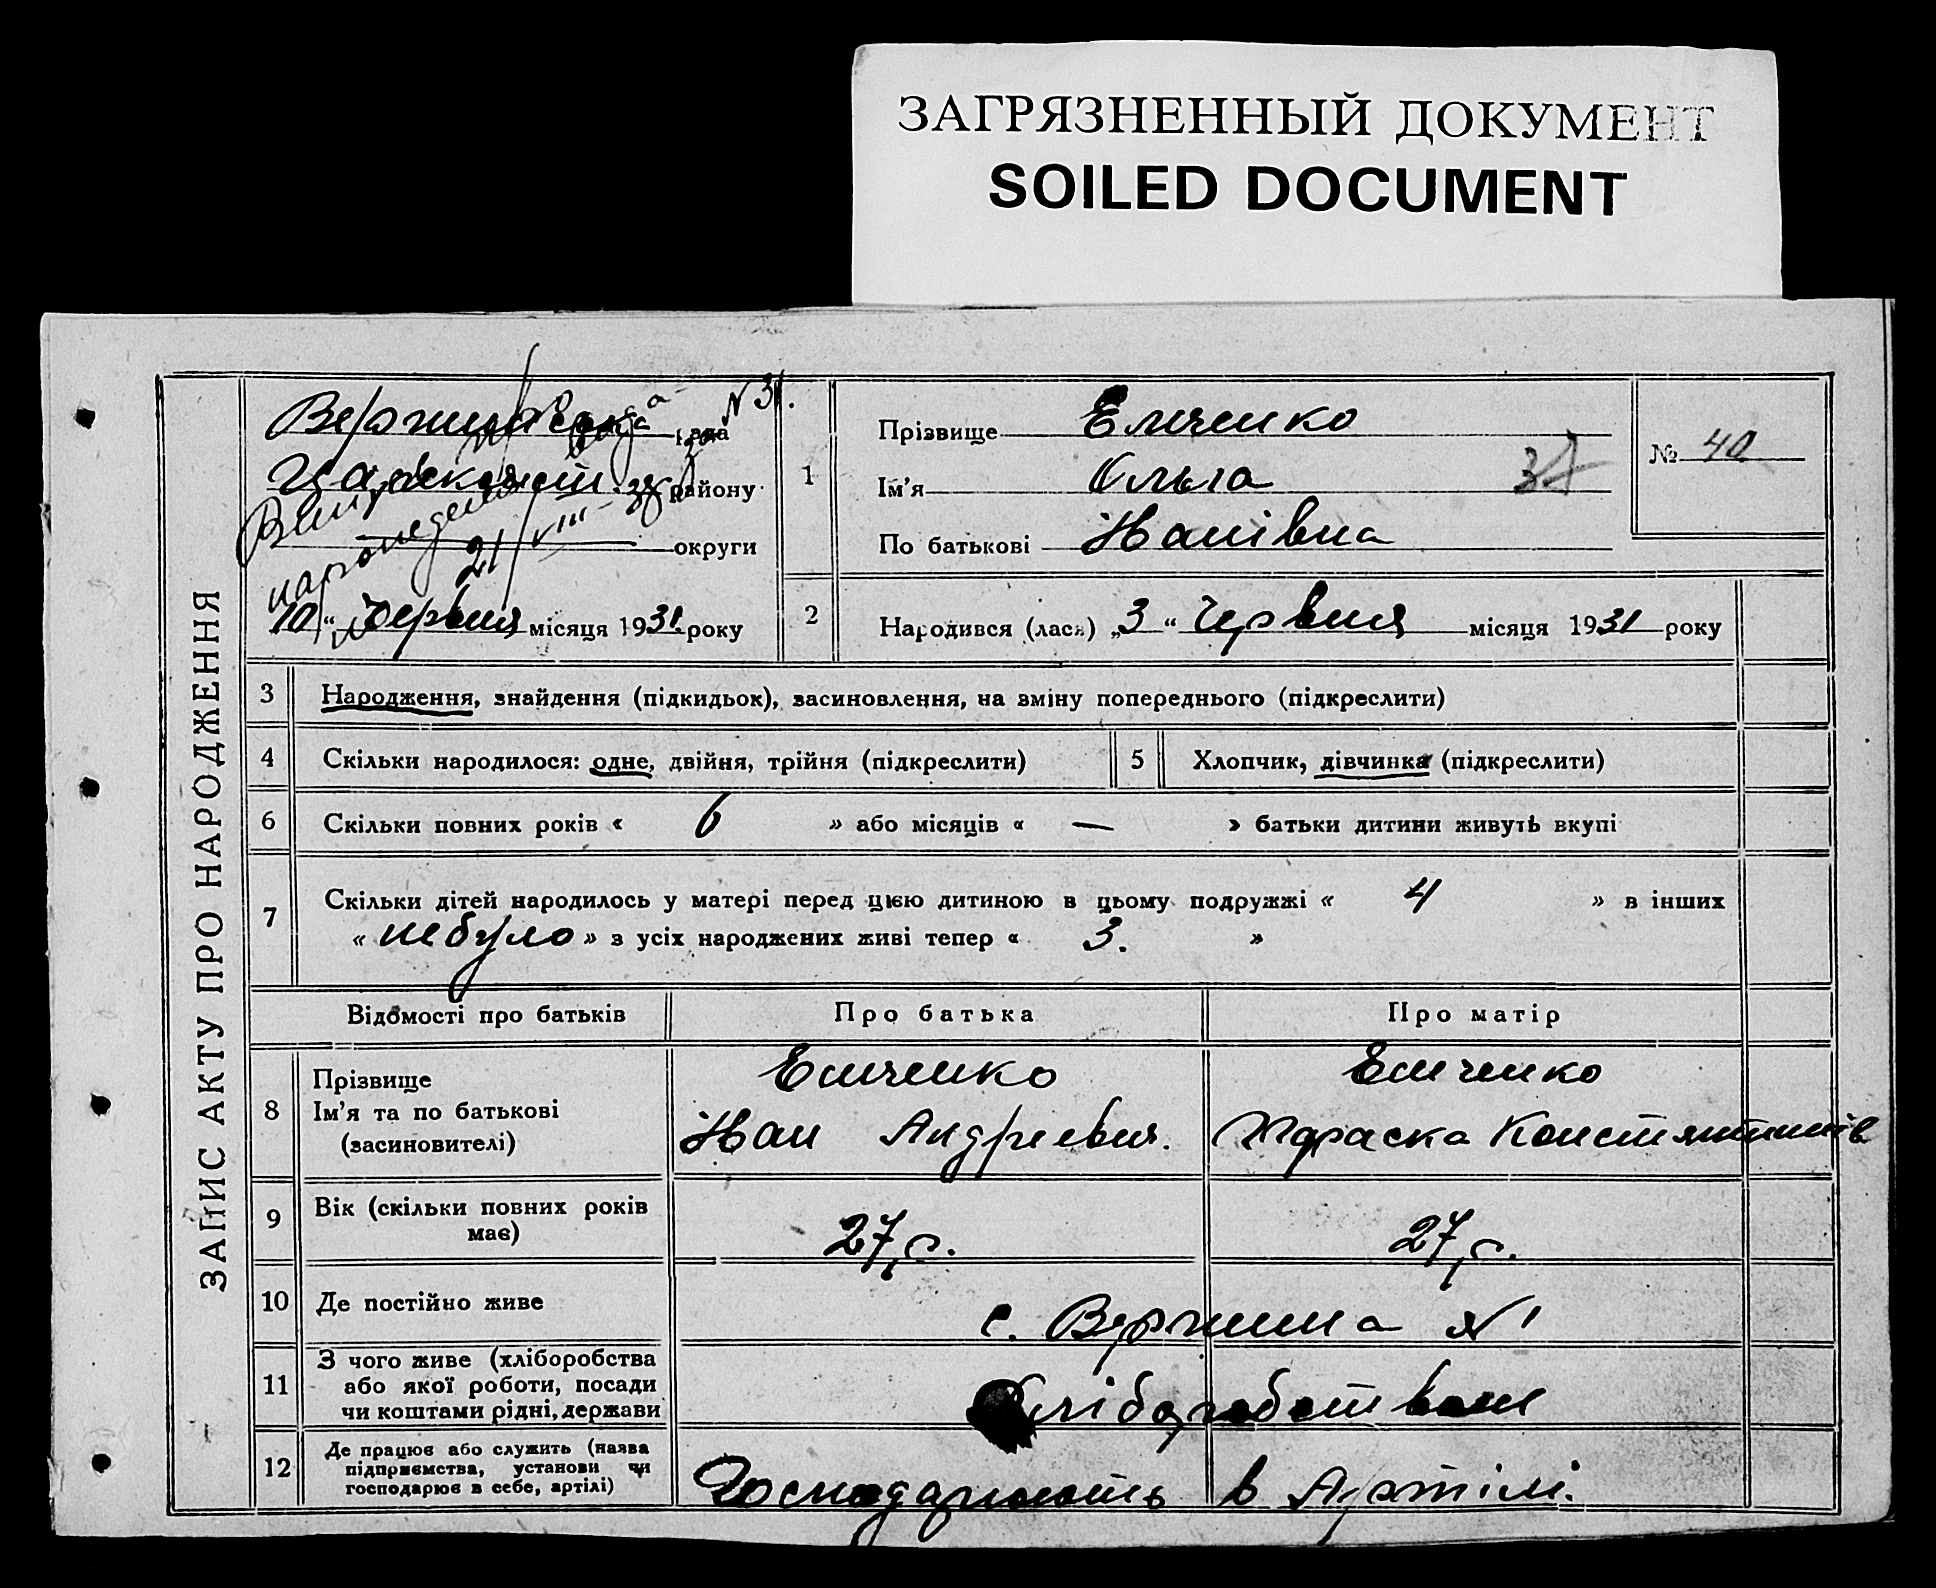 ЗАГРЯЗНЕННЫЙ ДОКУМЕНТ
SOILED DOCUMENT
ЗАПИС АКТУ ПРО НАРОДЖЕННЯ
N 31.
рада
району
округи
21/VIII
"10" Червня місяця 1931 року
1
Прізвище Емченко
Ім'я Ольга
По батькові Іванівна
№ 40
2 Народився (лася) „3“ Червня місяця 1931 року
3 Народження, знайдення (підкидьок), засиновлення, на зміну попереднього (підкреслити)
4 Скільки народилося: одне, двійня, трійня (підкреслити) 5 Хлопчик, дівчинка (підкреслити)
6 Скільки повних років « 6 » або місяців « — » батьки дитини живуть вкупі
7 Скільки дітей народилось у матері перед цією дитиною в цьому подружжі « 4 » в інших
« не було » з усіх народжених живі тепер « 3. »
Відомості про батьків Про батька Про матір
8 Прізвище Емченко Емченко
Ім'я та по батькові Іван Андрієвич. Параска Констянтинів
(засиновителі)
9 Вік (скільки повних років має) 27 р. 27 р.
10 Де постійно живе с. Вершина N 1
11 З чого живе (хліборобства
або якої роботи, посади
чи коштами рідні, держави Хліборобством
12 Де працює або служить (назва
підприємства, установи чи
господарює в себе, артілі) Господарюють в Артілі.